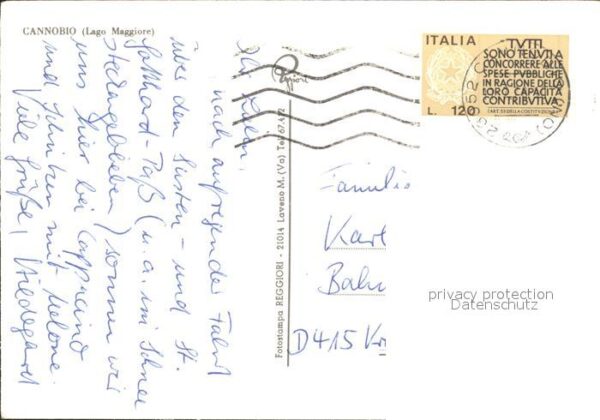 CANNOBIO (Lago Maggiore)
Ihr Lieben,
nach aufregender Fahrt
über den Susten- und St.
Gotthard-Paß (u.a. im Schnee
steckengeblieben) sonnen wir
uns hier bei Cappucino
und Schinken mit Melone.
Viele Grüße, Hildegard
Fotostampa REGGIORI - 21014 Laveno M. (Va) Tel. 67472
ITALIA
L. 120
TUTTI
SONO TENUTI A
CONCORRERE ALLE
SPESE PUBBLICHE
IN RAGIONE DELLA
LORO CAPACITÀ
CONTRIBUTIVA
Familie
Karl
Bahn
D415 Kr
privacy protection
Datenschutz